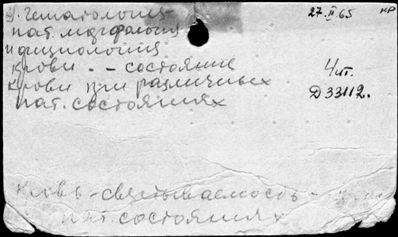 Гематология
пат. морфология
и физиология
крови - - состояние
крови при различных
пат. состояниях
27.II.65
КР
Чит.
Д33112.
Кровь - свертываемость -
пат состояниях